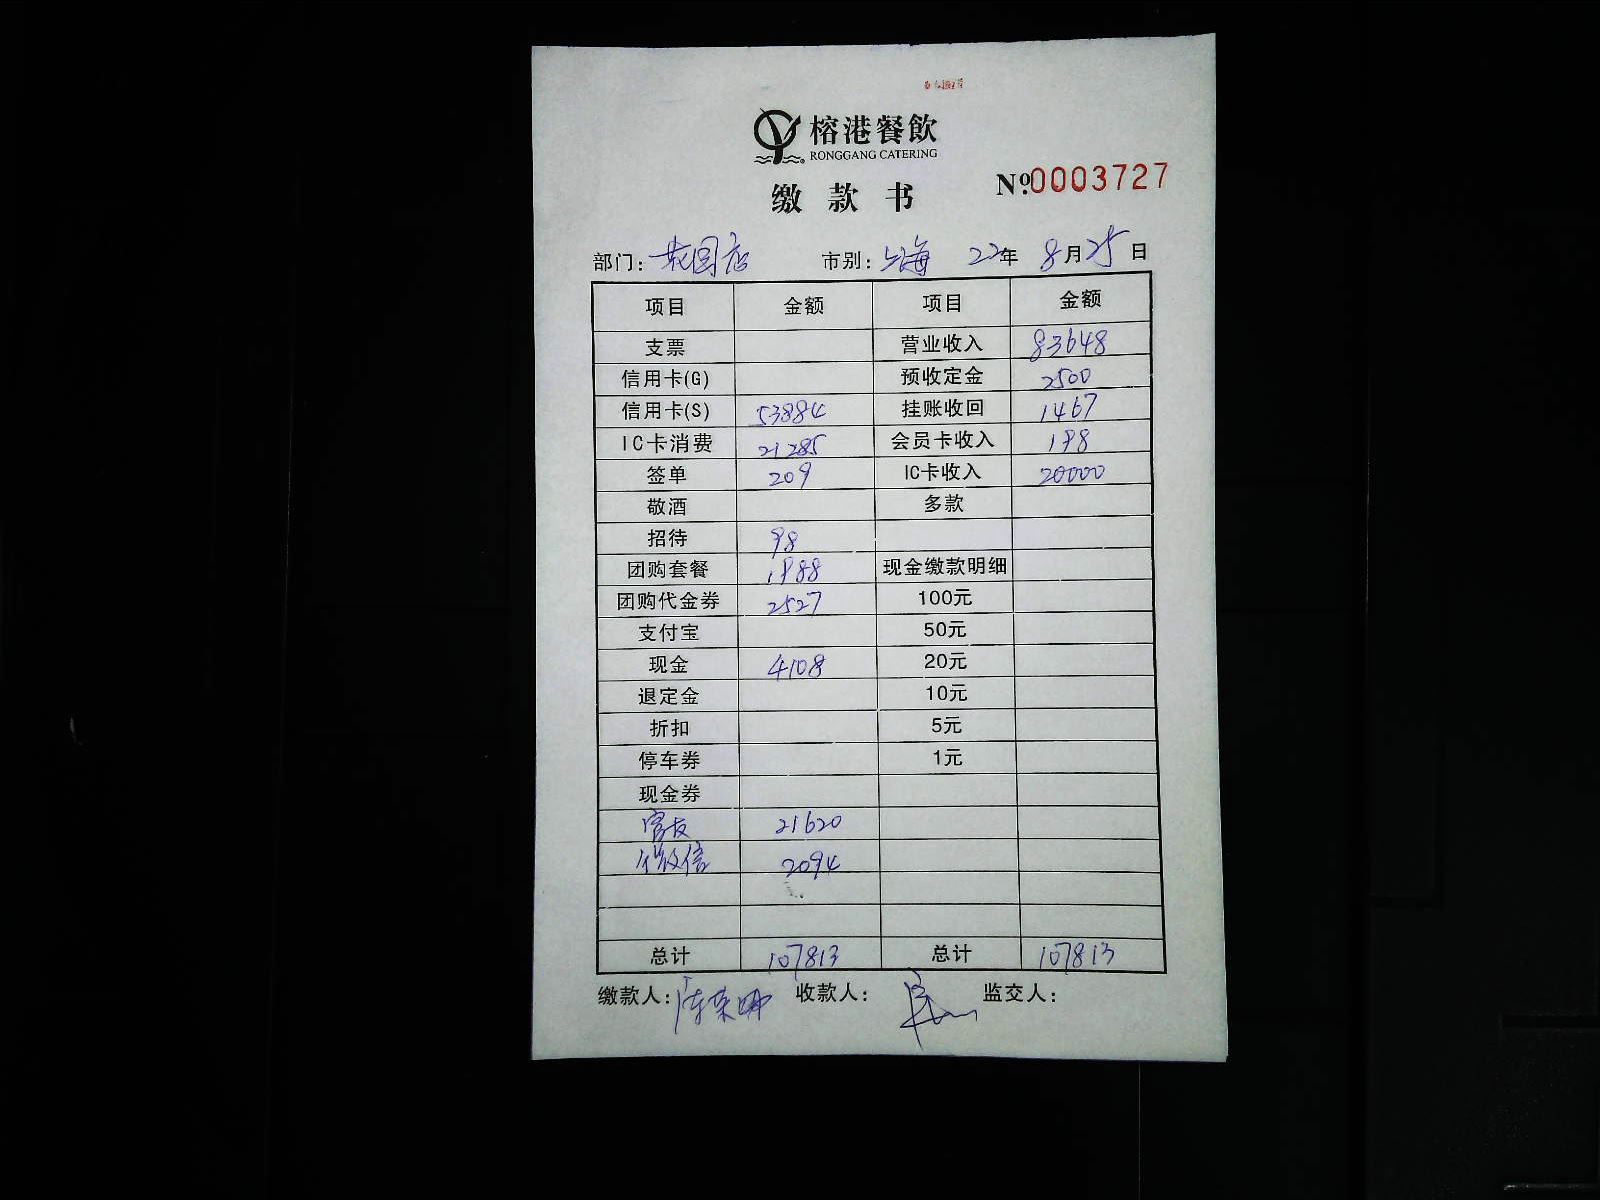 榕港餐飲
RONGGANG CATERING
缴款书
No.0003727
部门: 花园店 市别: 上海 22年 8月25日
项目 金额 项目 金额
支票 营业收入 83648
信用卡(G) 预收定金 2500
信用卡(S) 53884 挂账收回 1467
IC卡消费 21285 会员卡收入 198
签单 209 IC卡收入 20000
敬酒 多款
招待 98
团购套餐 1988 现金缴款明细
团购代金券 2527 100元
支付宝 50元
现金 4108 20元
退定金 10元
折扣 5元
停车券 1元
现金券
21620
微信 2094
总计 107813 总计 107813
缴款人: 收款人: 监交人: